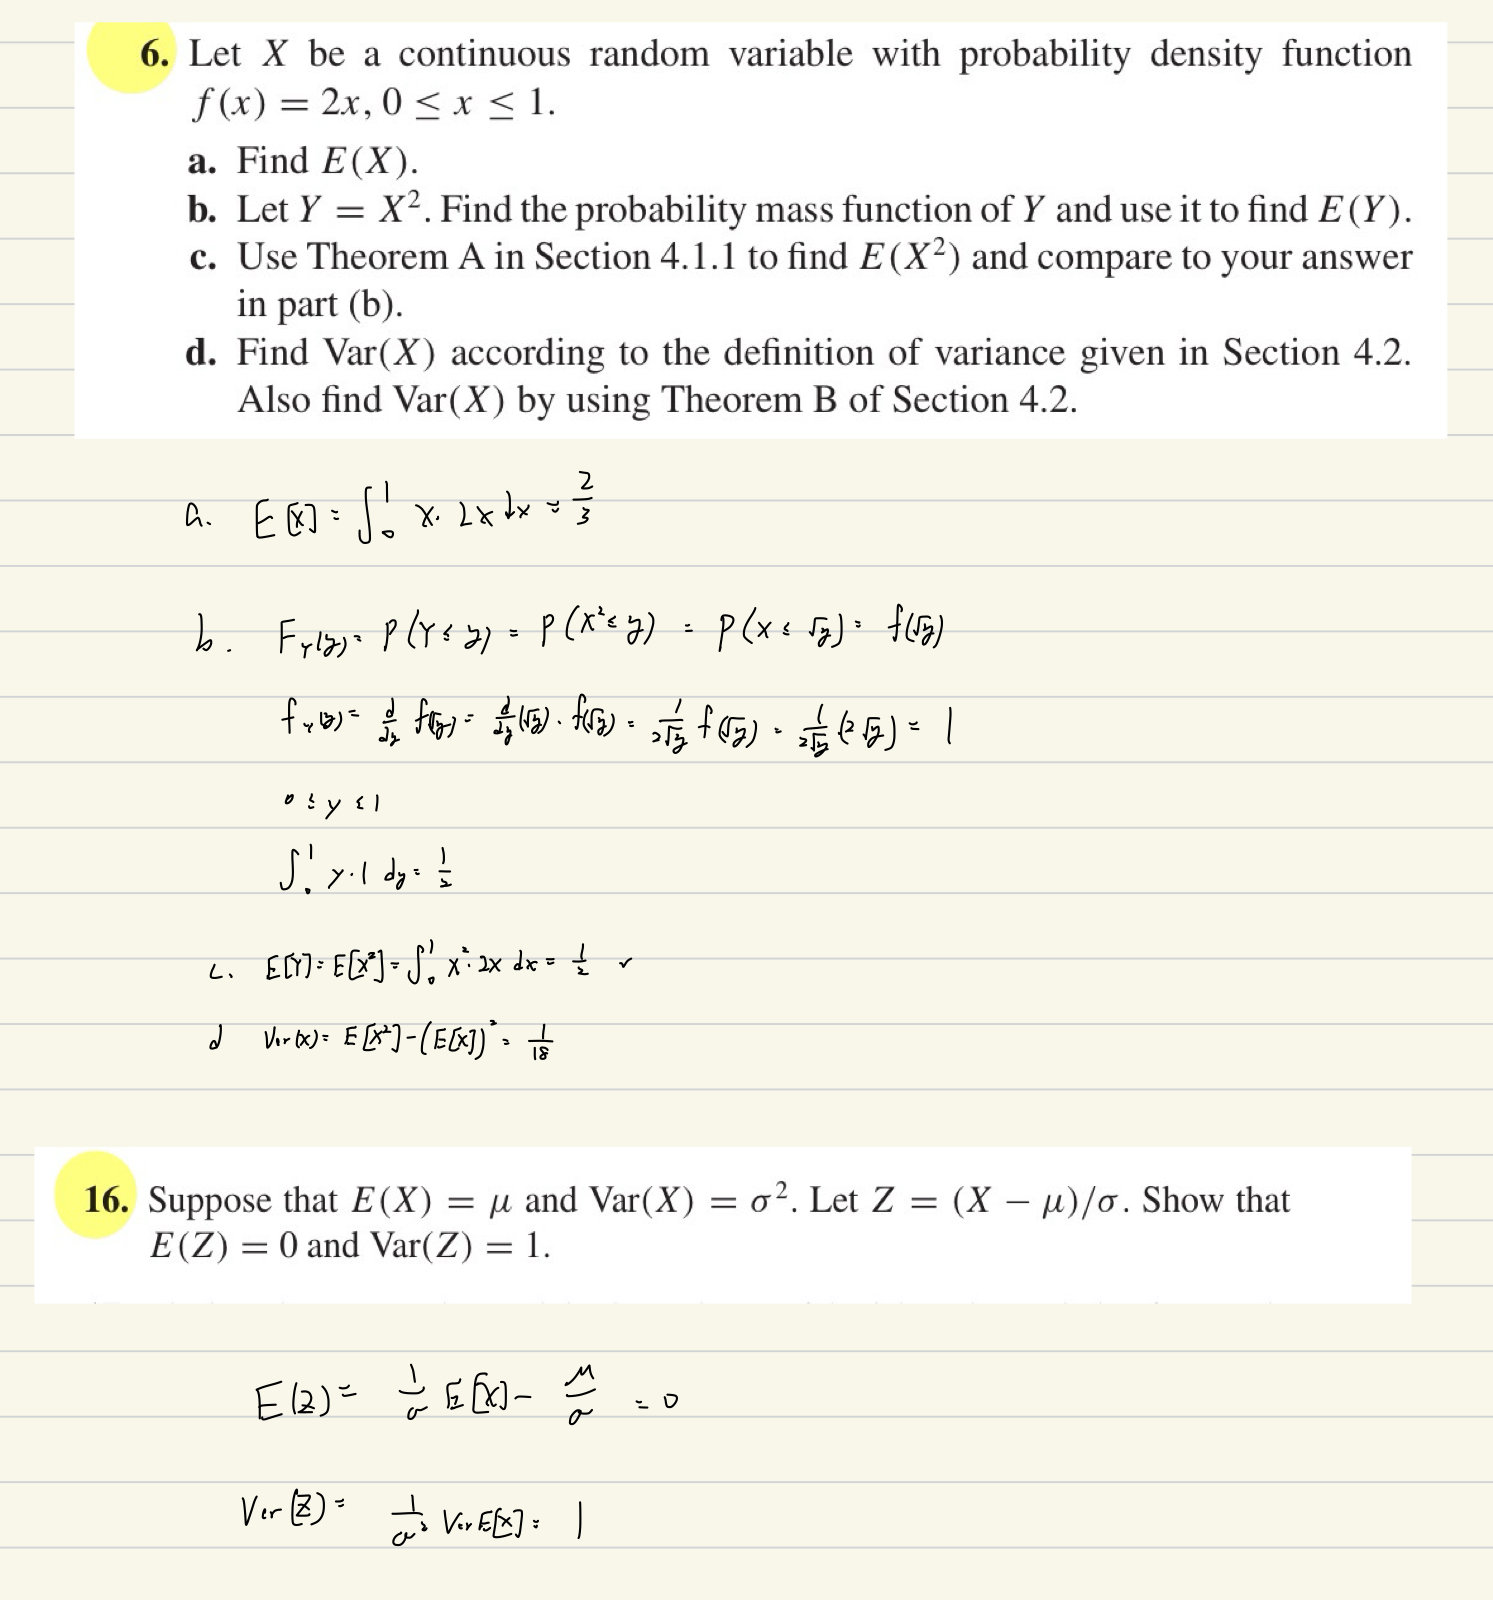 6. Let X be a continuous random variable with probability density function
f(x) = 2x, 0 ≤ x ≤ 1.
a. Find E(X).
b. Let Y = X². Find the probability mass function of Y and use it to find E(Y).
c. Use Theorem A in Section 4.1.1 to find E(X²) and compare to your answer
in part (b).
d. Find Var(X) according to the definition of variance given in Section 4.2.
Also find Var(X) by using Theorem B of Section 4.2.
a. E[X] = ∫₀¹ x · 2x dx = 2/3
b. F_Y(y) = P(Y ≤ y) = P(X² ≤ y) = P(X ≤ √y) = f(√y)
f_Y(y) = d/dy f(√y) = d/dy (√y) · f(√y) = 1/(2√y) f(√y) = 1/(2√y) (2√y) = 1
0 ≤ y ≤ 1
∫₀¹ y · 1 dy = 1/2
c. E[Y] = E[X²] = ∫₀¹ x² · 2x dx = 1/2 ✓
d Var(X) = E[X²] - (E[X])² = 1/18
16. Suppose that E(X) = μ and Var(X) = σ². Let Z = (X − μ)/σ. Show that
E(Z) = 0 and Var(Z) = 1.
E(Z) = 1/σ E[X] - μ/σ = 0
Var(Z) = 1/σ² Var E[X] = 1